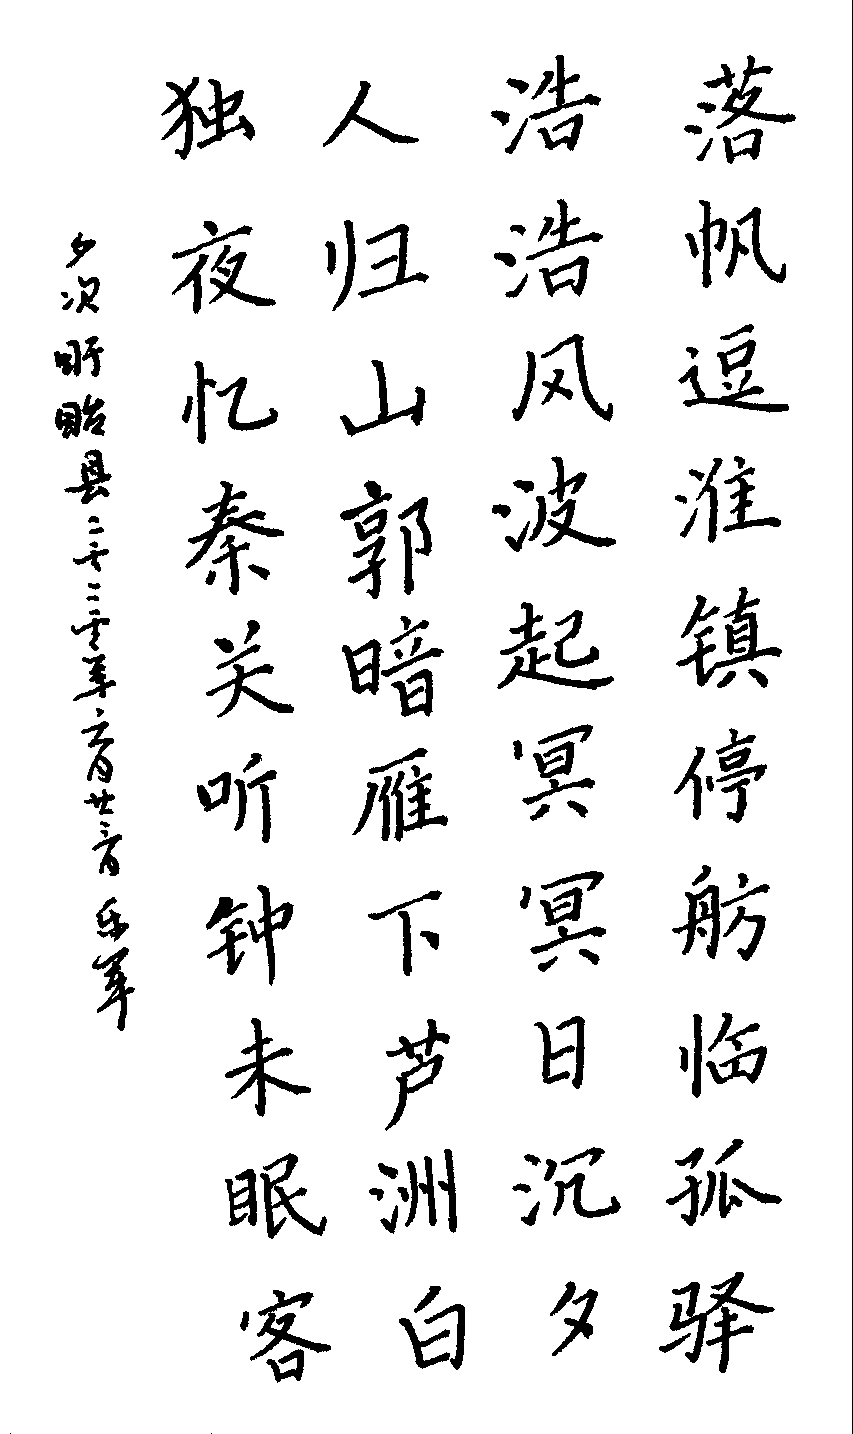 落帆逗淮镇停舫临孤驿
浩浩风波起冥冥日沉夕
人归山郭暗雁下芦洲白
独夜忆秦关听钟未眠客
夕次盱眙县二零二零年六月廿三日 乐军